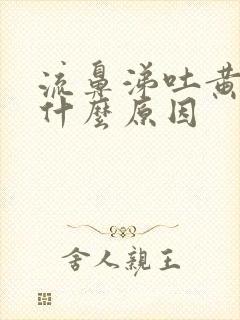 流鼻涕吐黄
什麼原因
舍人親王